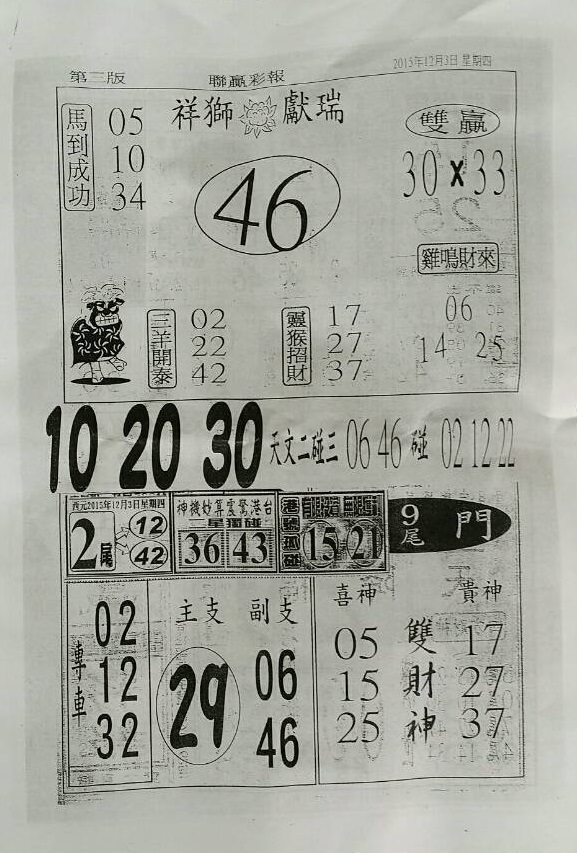 第三版 聯贏彩報 2015年12月3日 星期四
馬到成功
05
10
34
祥獅獻瑞
46
雙贏
30 x 33
雞鳴財來
06
14 25
三羊開泰
02
22
42
靈猴招財
17
27
37
10 20 30 天文二碰三 06 46 碰 02 12 22
西元2015年12月3日星期四
2尾 12 42
神機妙算震驚港台
二星獨碰
36 43
港號孤碰
15 21
9尾 門
專車
02
12
32
主支 副支
29
06
46
喜神 貴神
05 雙 17
15 財 27
25 神 37